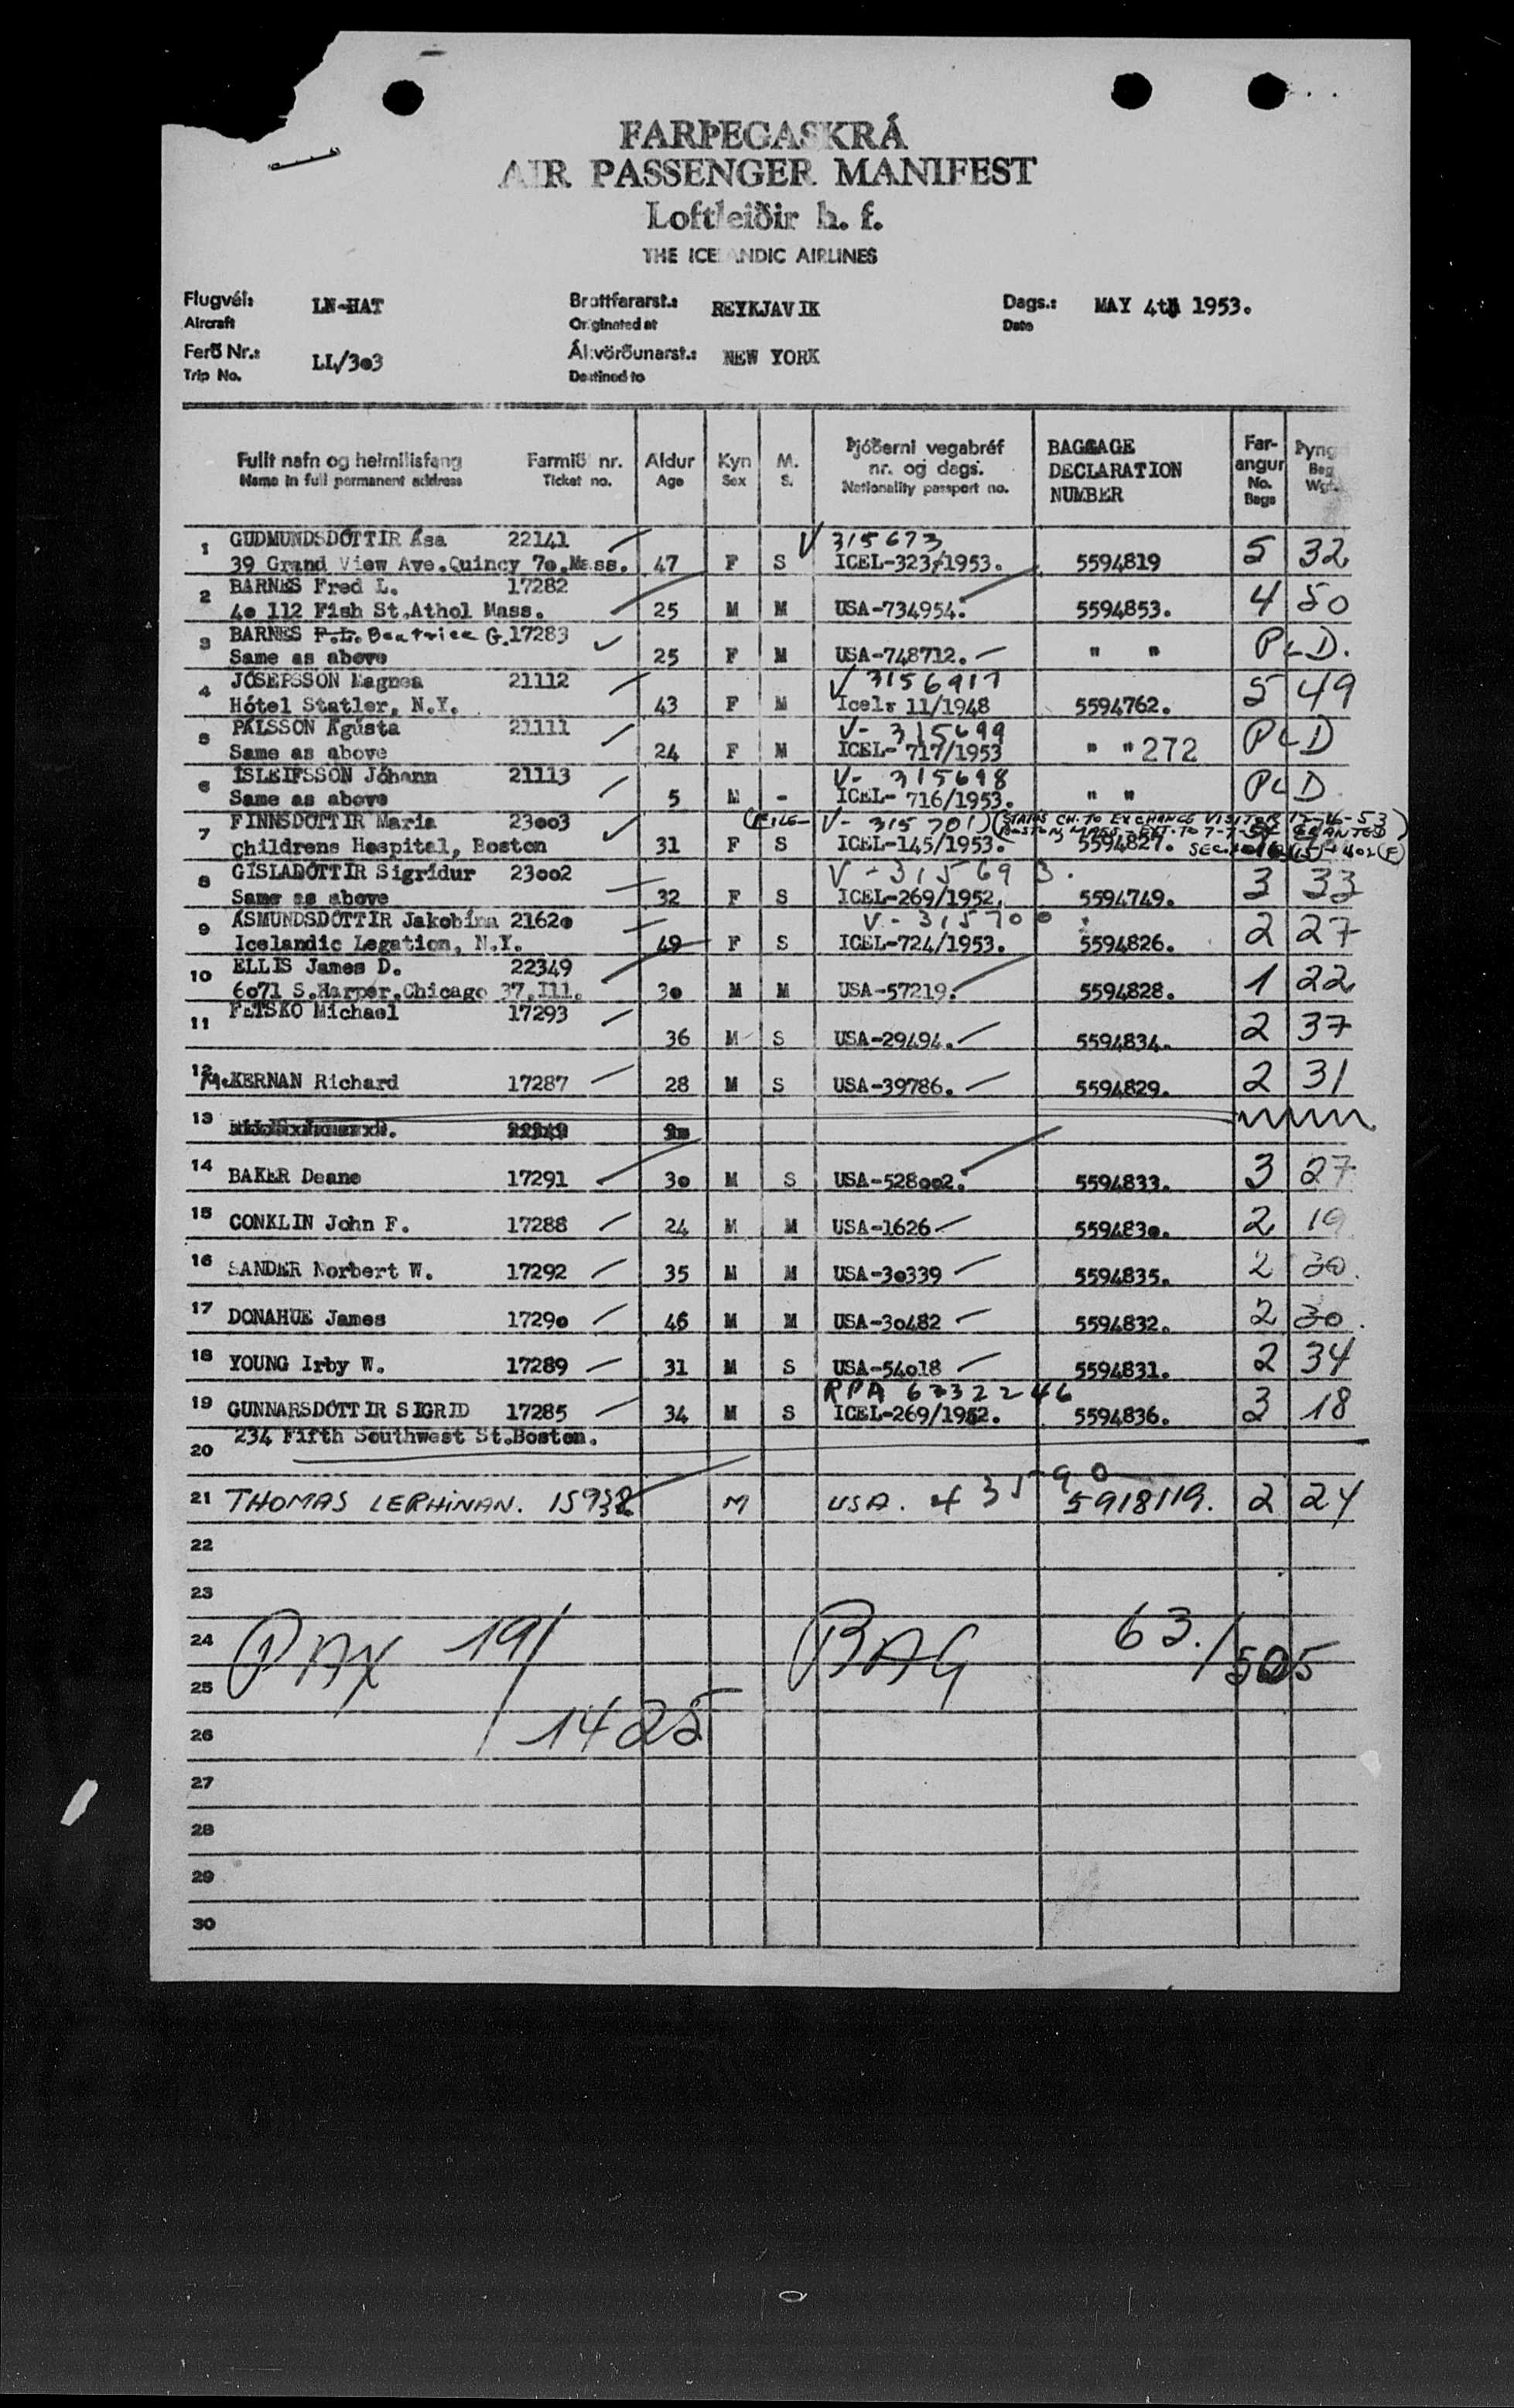 FARÞEGASKRÁ
AIR PASSENGER MANIFEST
Loftleiðir h. f.
THE ICELANDIC AIRLINES
Flugvél: LN-HAT Brottfararst.: REYKJAVIK Dags.: MAY 4th 1953.
Aircraft Originated at Date
Ferð Nr.: LL/3o3 Ákvörðunarst.: NEW YORK
Trip No. Destined to
Fullt nafn og heimilisfang Farmið nr. Aldur Kyn M. Þjóðerni vegabréf nr. og dags. BAGGAGE DECLARATION NUMBER Farangur Þyngd
Name in full permanent address Ticket no. Age Sex S. Nationality passport no. No. Bags Bag Wgt.
1 GUDMUNDSDÓTTIR Ása 22141 V 315673
39 Grand View Ave.Quincy 7o.Mass. 47 F S ICEL-323/1953. 5594819 5 32
2 BARNES Fred L. 17282
4o 112 Fish St.Athol Mass. 25 M M USA-734954. 5594853. 4 50
3 BARNES F.L. Beatrice G. 17283
Same as above 25 F M USA-748712. " " PLD.
4 JÓSEFSSON Magnea 21112 V 3156917
Hótel Statler, N.Y. 43 F M Icel: 11/1948 5594762. 5 49
5 PÁLSSON Ágústa 21111 V- 315699
Same as above 24 F M ICEL- 717/1953 " " 272 PLD
6 ÍSLEIFSSON Jóhann 21113 V- 315698
Same as above 5 M - ICEL- 716/1953. " " PLD
7 FINNSDÓTTIR María 23oo3 (FILE- V- 315701) (STATUS CH. TO EXCHANGE VISITOR 12-16-53
BOSTON, MASS. EXT. TO 7-7-54 GRANTED)
Childrens Hospital, Boston 31 F S ICEL-145/1953. 5594827. SEC. 402(F)
8 GÍSLADÓTTIR Sigrídur 23oo2 V-315693.
Same as above 32 F S ICEL-269/1952. 5594749. 3 33
9 ÁSMUNDSDÓTTIR Jakobína 2162o V-315700.
Icelandic Legation, N.Y. 49 F S ICEL-724/1953. 5594826. 2 27
10 ELLIS James D. 22349
6o71 S.Harper.Chicago 37.Ill. 3o M M USA-57219. 5594828. 1 22
11 FETSKO Michael 17293
36 M S USA-29494. 5594834. 2 37
12 Mc.KERNAN Richard 17287 28 M S USA-39786. 5594829. 2 31
13
14 BAKER Deane 17291 3o M S USA-528oo2. 5594833. 3 27
15 CONKLIN John F. 17288 24 M M USA-1626 559483o. 2 19
16 SANDER Norbert W. 17292 35 M M USA-3o339 5594835. 2 30.
17 DONAHUE James 1729o 46 M M USA-3o482 5594832. 2 30.
18 YOUNG Irby W. 17289 31 M S USA-54o18 5594831. 2 34
RPA 6732246
19 GUNNARSDÓTTIR SIGRID 17285 34 M S ICEL-269/1952. 5594836. 3 18
20 234 Fifth Southwest St.Boston.
21 THOMAS LERHINAN. 15938 M USA. 43590 5918119. 2 24
22
23
24 PAX 19/ BAG 63./505
25
26 1425
27
28
29
30